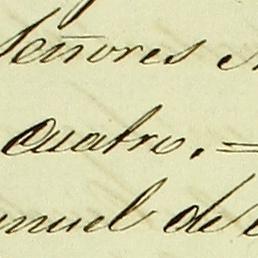 Señores
cuatro. =
nuel de